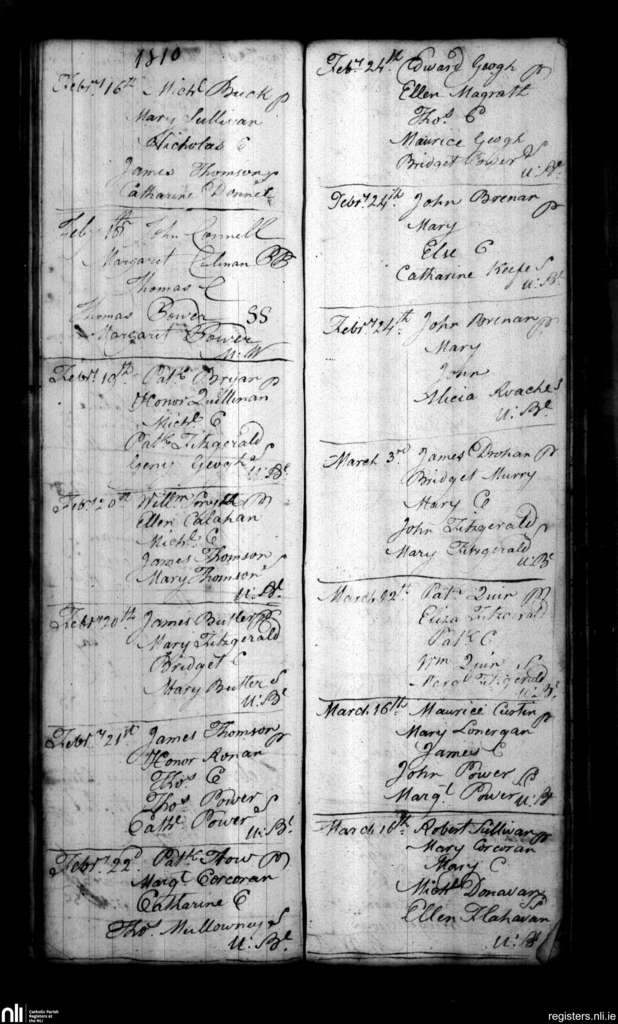 1810
Febry 16th Michl Buck pr
Mary Sullivan
Nicholas C
James Thomson
Catharine Donnel
Feb 18th John Connell
Margaret PP
Thomas C
Thomas Power SS
Margaret Power
U: W
Febry 19th Patk Bryan p
Honor Quillinan
Michl C
Patk Fitzgerald
Geogh S
U: Bl
Febry 20th Willm pr
Ellen Calahan
Michl C
James Thomson
Mary Thomson S
U: Bl
Febry 20th James Butler pr
Mary Fitzgerald
Bridget C
Mary Butler S
U: Bl
Febry 21st James Thomson pr
Honor Ronan
Thos C
Thos Power
Cathe Power S
U: Bl
Febry 22d Patk How pr
Margt Corcoran
Catharine C
Thos Mullowney S
U: Bl
Febry 24th Edward Geogh pr
Ellen Magrath
Thos C
Maurice Geogh
Bridget Power S
U: Bl
Febry 24th John Brenan pr
Mary
Else C
Catharine Keefe S
U: Bl
Febry 24th John Brenan pr
Mary
John
Alicia Roache S
U: Bl
March 3rd James Drohan pr
Bridget Murry
Mary C
John Fitzgerald
Mary Fitzgerald S
U: Bl
March 12th Patk Quin pr
Eliza Fitzgerald
Patk C
Wm Quin S
Margt Fitzgerald
U: Bl
March 16th Maurice Curtin pr
Mary Lonergan
James C
John Power S
Margt Power U: Bl
March 16th Robert Sullivan pr
Mary Corcoran
Mary C
Michl Donavan
Ellen Flahavan S
U: Bl
nli
Catholic Parish
Registers at
the NLI
registers.nli.ie